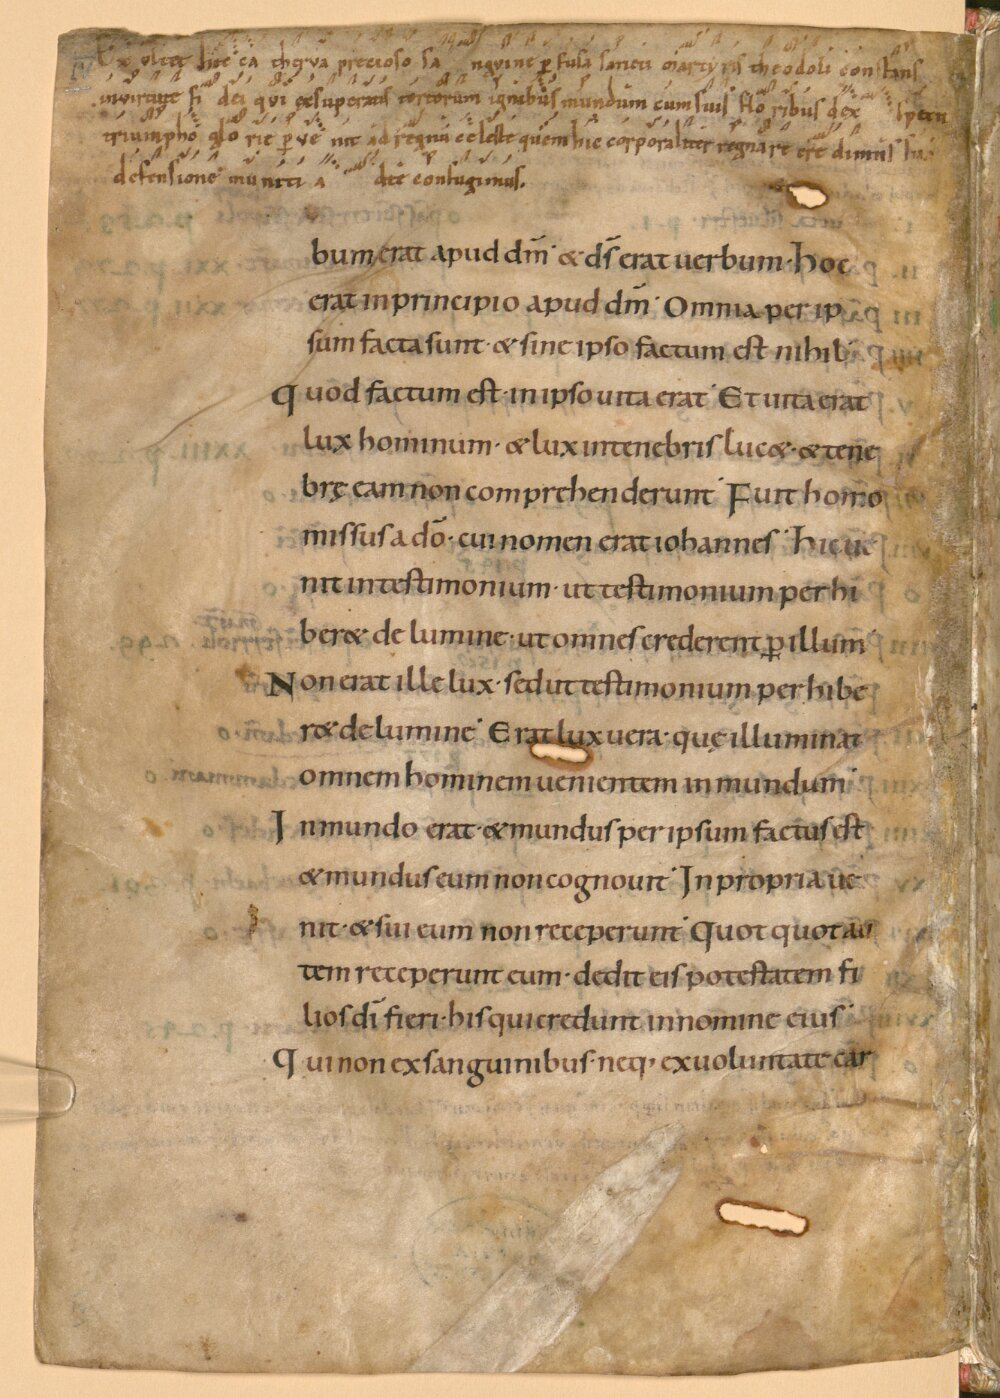 Exultet hec ca therva precioso sanguine ꝑfusa sancti martyris theodoli constans
invirtute dei qui exsuperatis tortorum ignibus mundum cum suis floribus
triumpho glorie ꝑvenit ad regnū celeste quem hic corporaliter regnare
defensione muniti confugimus.
bum erat apud dm̄ · & ds̄ erat uerbum · hoc
erat inprincipio apud dm̄ · Omnia per ip
sum facta sunt · & sine ipso factum est nihil ·
Quod factum est · in ipso uita erat · Et uita erat
lux hominum · & lux intenebris luc& · & tene
brę eam non comprehenderunt · Fuit homo
missus a dō · cui nomen erat iohannes · hic ue
nit intestimonium · ut testimonium perhi
ber& de lumine · ut omnes crederent ꝑ illum ·
Non erat ille lux · sed ut testimonium perhibe
r& de lumine · Erat lux uera · quę illuminat
omnem hominem uenientem in mundum ·
In mundo erat · & mundus per ipsum factus est
& mundus eum non cognouit · In propria ue
nit · & sui eum non receperunt · Quot quot au
tem receperunt eum · dedit eis potestatem fi
lios dī fieri · his qui credunt in nomine eius ·
Qui non ex sanguinibus · neq; ex uoluntate car